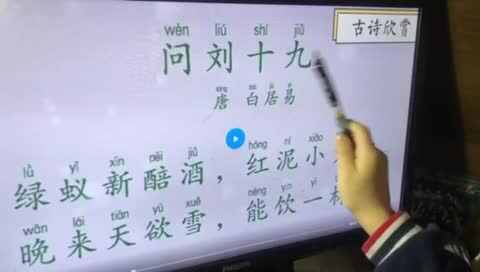 古诗欣赏
wèn liú shí jiǔ
问刘十九
唐 白居易
lǜ yǐ xīn pēi jiǔ, hóng ní xiǎo
绿蚁新醅酒,红泥小
wǎn lái tiān yù xuě, néng yǐn yì
晚来天欲雪,能饮一杯